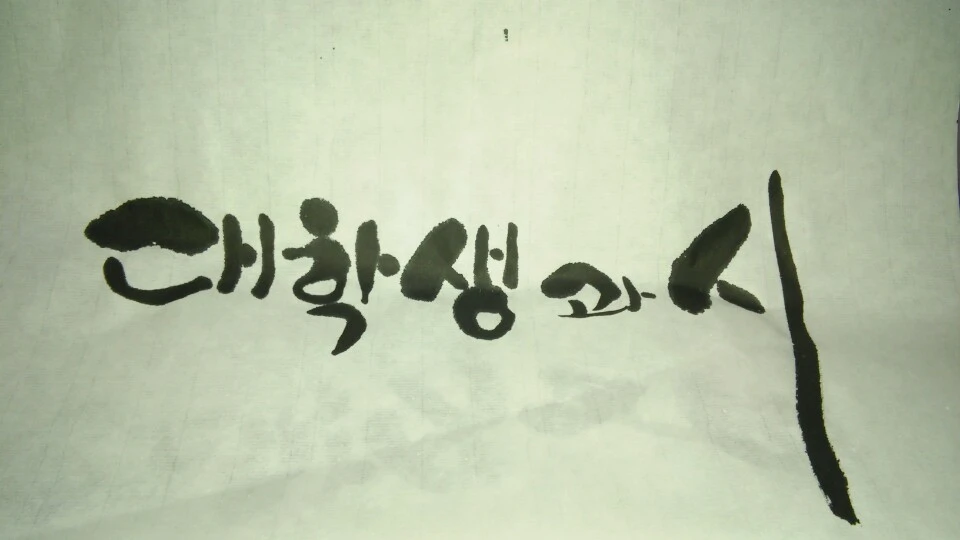 대학생과 시